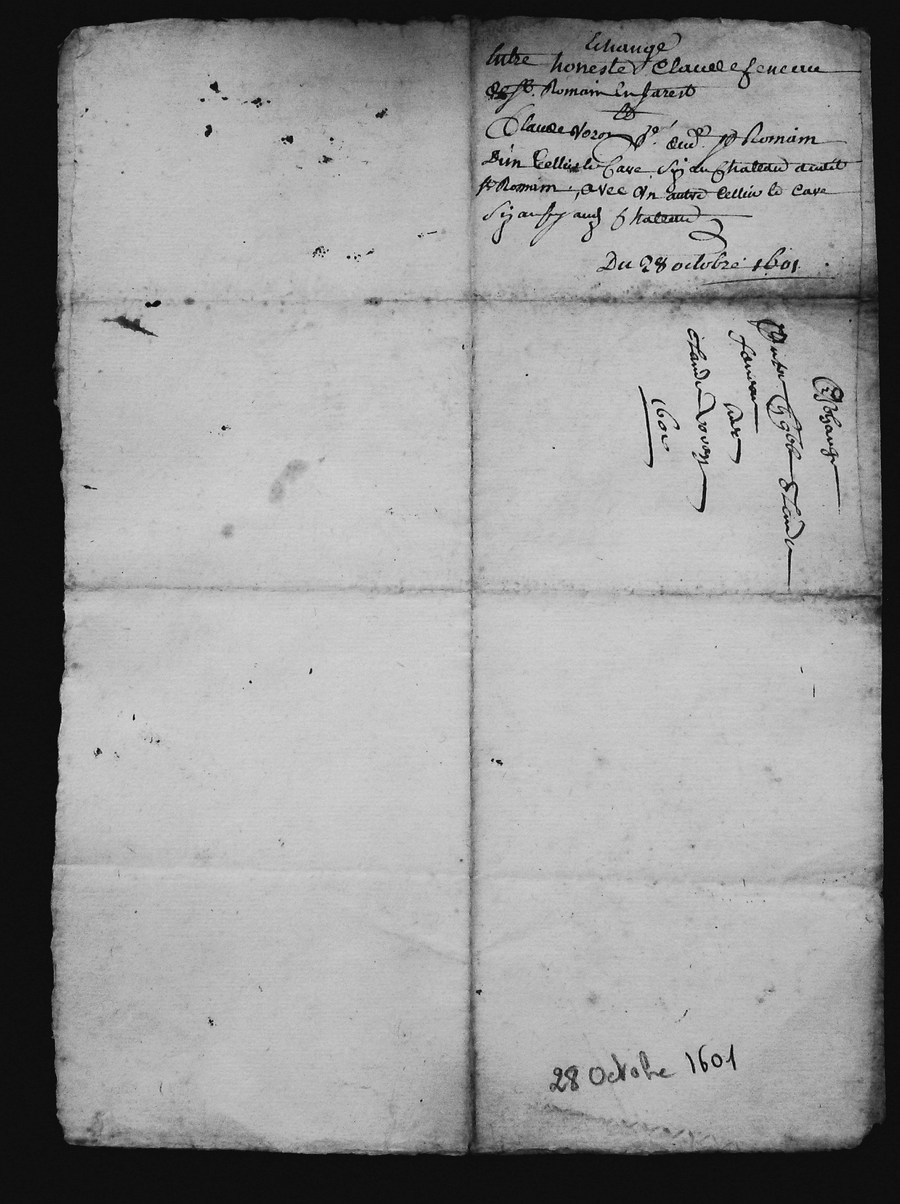 Echange
Entre honeste Claude feneau
de St. Romain En Jarest
Et
Claude Voron dud. St Romain
D'un Cellier le Cave Sis au Chateau dudit
St Romain, avec Un autre Cellier le Cave
Sis aud Chateau
Du 28 octobre 1601.
Eschange
Entre Claude
feneau
par
Claude Voron
1601
28 Octobre 1601